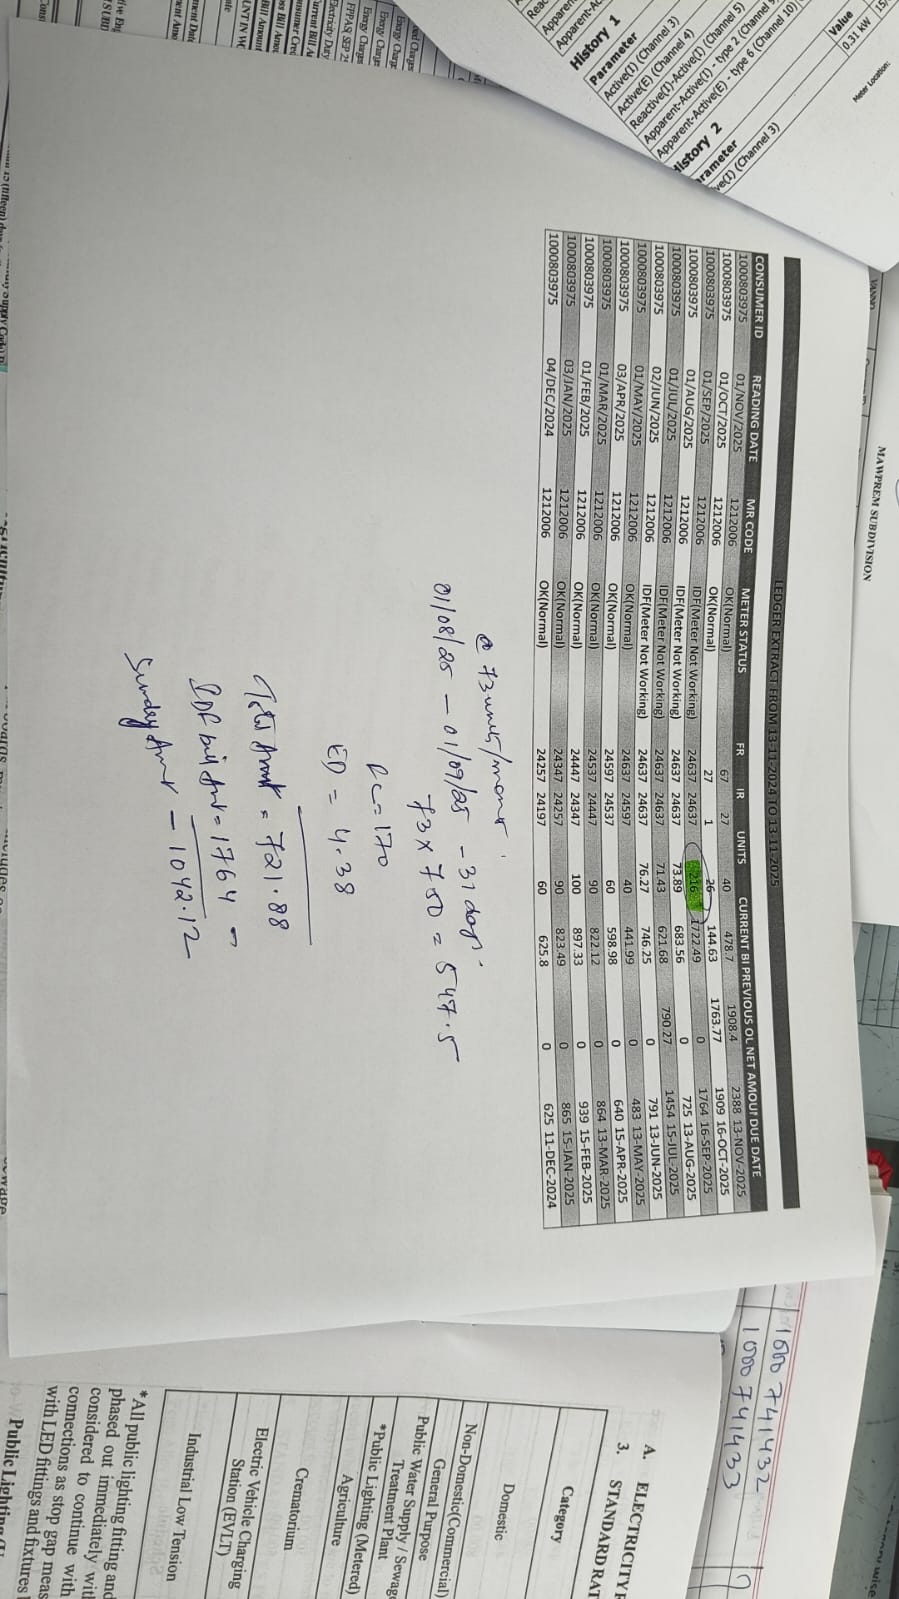 MAWPREM SUBDIVISION
LEDGER EXTRACT FROM 13-11-2024 TO 13-11-2025
CONSUMER ID READING DATE MR CODE METER STATUS FR IR UNITS CURRENT BI PREVIOUS OL NET AMOUNT DUE DATE
1000803975 01/NOV/2025 1212006 OK(Normal) 67 27 40 478.7 1908.4 2388 13-NOV-2025
1000803975 01/OCT/2025 1212006 OK(Normal) 27 1 26 144.63 1763.77 1909 16-OCT-2025
1000803975 01/SEP/2025 1212006 IDF(Meter Not Working) 24637 24637 216 1722.49 0 1764 16-SEP-2025
1000803975 01/AUG/2025 1212006 IDF(Meter Not Working) 24637 24637 73.89 683.56 0 725 13-AUG-2025
1000803975 01/JUL/2025 1212006 IDF(Meter Not Working) 24637 24637 71.43 621.68 790.27 1454 15-JUL-2025
1000803975 02/JUN/2025 1212006 IDF(Meter Not Working) 24637 24637 76.27 746.25 0 791 13-JUN-2025
1000803975 01/MAY/2025 1212006 OK(Normal) 24637 24597 40 441.99 0 483 13-MAY-2025
1000803975 03/APR/2025 1212006 OK(Normal) 24597 24537 60 598.98 0 640 15-APR-2025
1000803975 01/MAR/2025 1212006 OK(Normal) 24537 24447 90 822.12 0 864 13-MAR-2025
1000803975 01/FEB/2025 1212006 OK(Normal) 24447 24347 100 897.33 0 939 15-FEB-2025
1000803975 03/JAN/2025 1212006 OK(Normal) 24347 24257 90 823.49 0 865 15-JAN-2025
1000803975 04/DEC/2024 1212006 OK(Normal) 24257 24197 60 625.8 0 625 11-DEC-2024
@ 73 units/month
01/08/25 - 01/09/25 - 31 days.
73 x 7.50 = 547.5
FC = 170
ED = 4.38
Total Amt = 721.88
IDF bill Amt = 1764 -
Sunday Amt - 1042.12
History 1
Parameter
Active(I) (Channel 3)
Active(E) (Channel 4)
Reactive(I)-Active(I) (Channel 5)
Apparent-Active(I) - type 2 (Channel 9)
Apparent-Active(E) - type 6 (Channel 10)
History 2
Value
0.31 kW
Meter Location:
1000741432
1000741433
A. ELECTRICITY
3. STANDARD RAT
Category
Domestic
Non-Domestic(Commercial)
General Purpose
Public Water Supply / Sewage
Treatment Plant
*Public Lighting (Metered)
Agriculture
Crematorium
Electric Vehicle Charging
Station (EVLT)
Industrial Low Tension
*All public lighting fitting and
phased out immediately wit
considered to continue with
connections as stop gap meas
with LED fittings and fixtures
Public Lighting